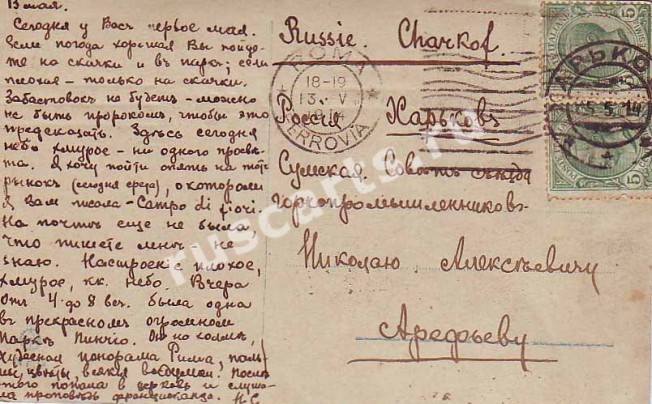 13 мая.
Сегодня у Васъ первое мая.
Если погода хорошая Вы пойде-
те на скачки и въ паркъ; если
плохая – только на скачки.
Забастовокъ не будетъ – можно
не быть пророкомъ, чтобы это
предсказать. Здѣсь сегодня
небо хмурое – ни одного просвѣ-
та. Я хочу пойти опять на тотъ
рынокъ (сегодня среда), о которомъ
я Вам писала – Campo di fiori.
На почтѣ еще не была,
что пишете мнѣ не
знаю. Настроеніе плохое,
хмурое, кк. небо. Вчера
отъ 4 до 8 веч. была одна
въ прекрасномъ огромномъ
паркѣ Пинчіо. Он на холмѣ,
чудесная панорама Рима, паль-
мы, цвѣты, всякія
этого попала в церковь и слуша-
ла проповѣдь францисканца. Н.С.
Russie. Charkof.
Россія Харьковъ
Сумская. Совѣтъ съѣзда
горнопромышленниковъ
Николаю Алексѣевичу
Арефьеву
ROMA
18-19
13. V
FERROVIA
ХАРЬКОВ
5.5.14
5
5
ruscarts.ru